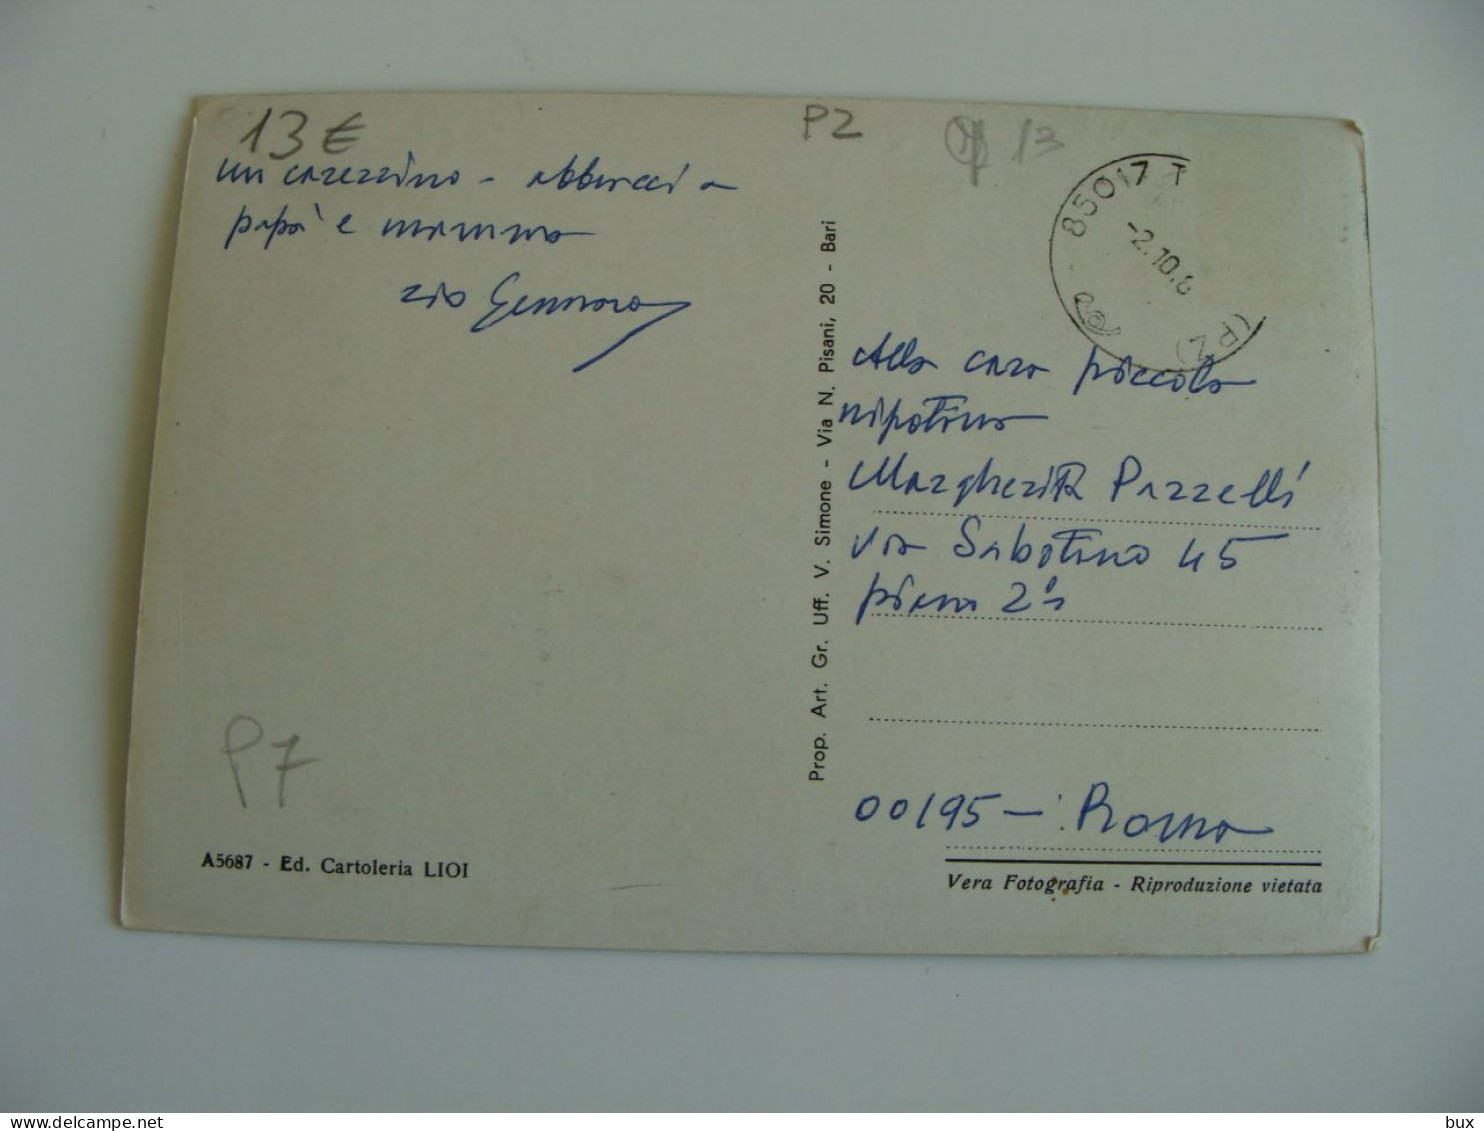 13€
un carezzino - abbracci a
papà e mamma
zio Gennaro
P7
A5687 - Ed. Cartoleria LIOI
Prop. Art. Gr. Uff. V. Simone - Via N. Pisani, 20 - Bari
PZ
13
85017 T
-2.10.8
(PZ)
Alla cara piccola
nipotina
Margherita Pazzelli
via Sabotino 45
piano 2°
00195 - Roma
Vera Fotografia - Riproduzione vietata
bux